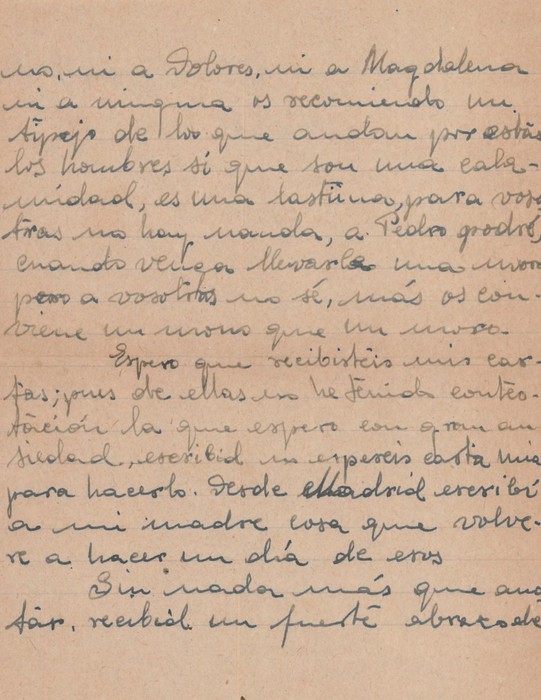 no, ni a Dolores, ni a Magdalena
ni a ninguna os recomiendo un
tipejo de los que andan por estas
los hombres si que son una cala-
midad, es una lastima, para voso
tras no hay nanda, a Pedro podré,
cuando venga llevarle una mora
pero a vosotras no sé, más os con-
viene un mono que un moro.
Espero que recibisteis mis car-
tas; pues de ellas no he tenido contes-
tación la que espero con gran an
siedad, escribid no espereis carta mia
para hacerlo. Desde Madrid escribí
a mi madre cosa que volve-
re a hacer un día de esos
Sin nada más que ano
tar, recibid un fuerte abrazo de